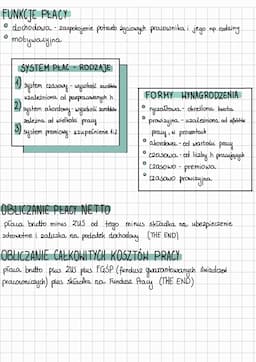 FUNKCJE PŁACY
dochodowa - zaspokojenie potrzeb życiowych pracownika i jego np. rodziny
motywacyjna
SYSTEM PŁAC - RODZAJE
1) system czasowy - wysokość zarobków
uzależniona od przepracowanych h
2) system akordowy - wysokość zarobków
zależna od wartości pracy
3) system premiowy - uzupełnienie 1i2
FORMY WYNAGRODZENIA
ryczałtowa - określona kwota
prowizyjna - uzależniona od efektów
pracy, w procentach
akordowa - od wartości pracy
czasowa - od liczby h pracujących
czasowo - premiowa
czasowo prowizyjna
OBLICZANIE PŁACY NETTO
płaca brutto minus ZUS od tego minus składka na ubezpieczenie
zdrowotne i zaliczka na podatek dochodowy (THE END)
OBLICZANIE CAŁKOWITYCH KOSZTÓW PRACY
płaca brutto plus ZUS plus FGŚP (fundusz gwarantowanych świadczeń
pracowniczych) plus składka na Fundusz Pracy (THE END)